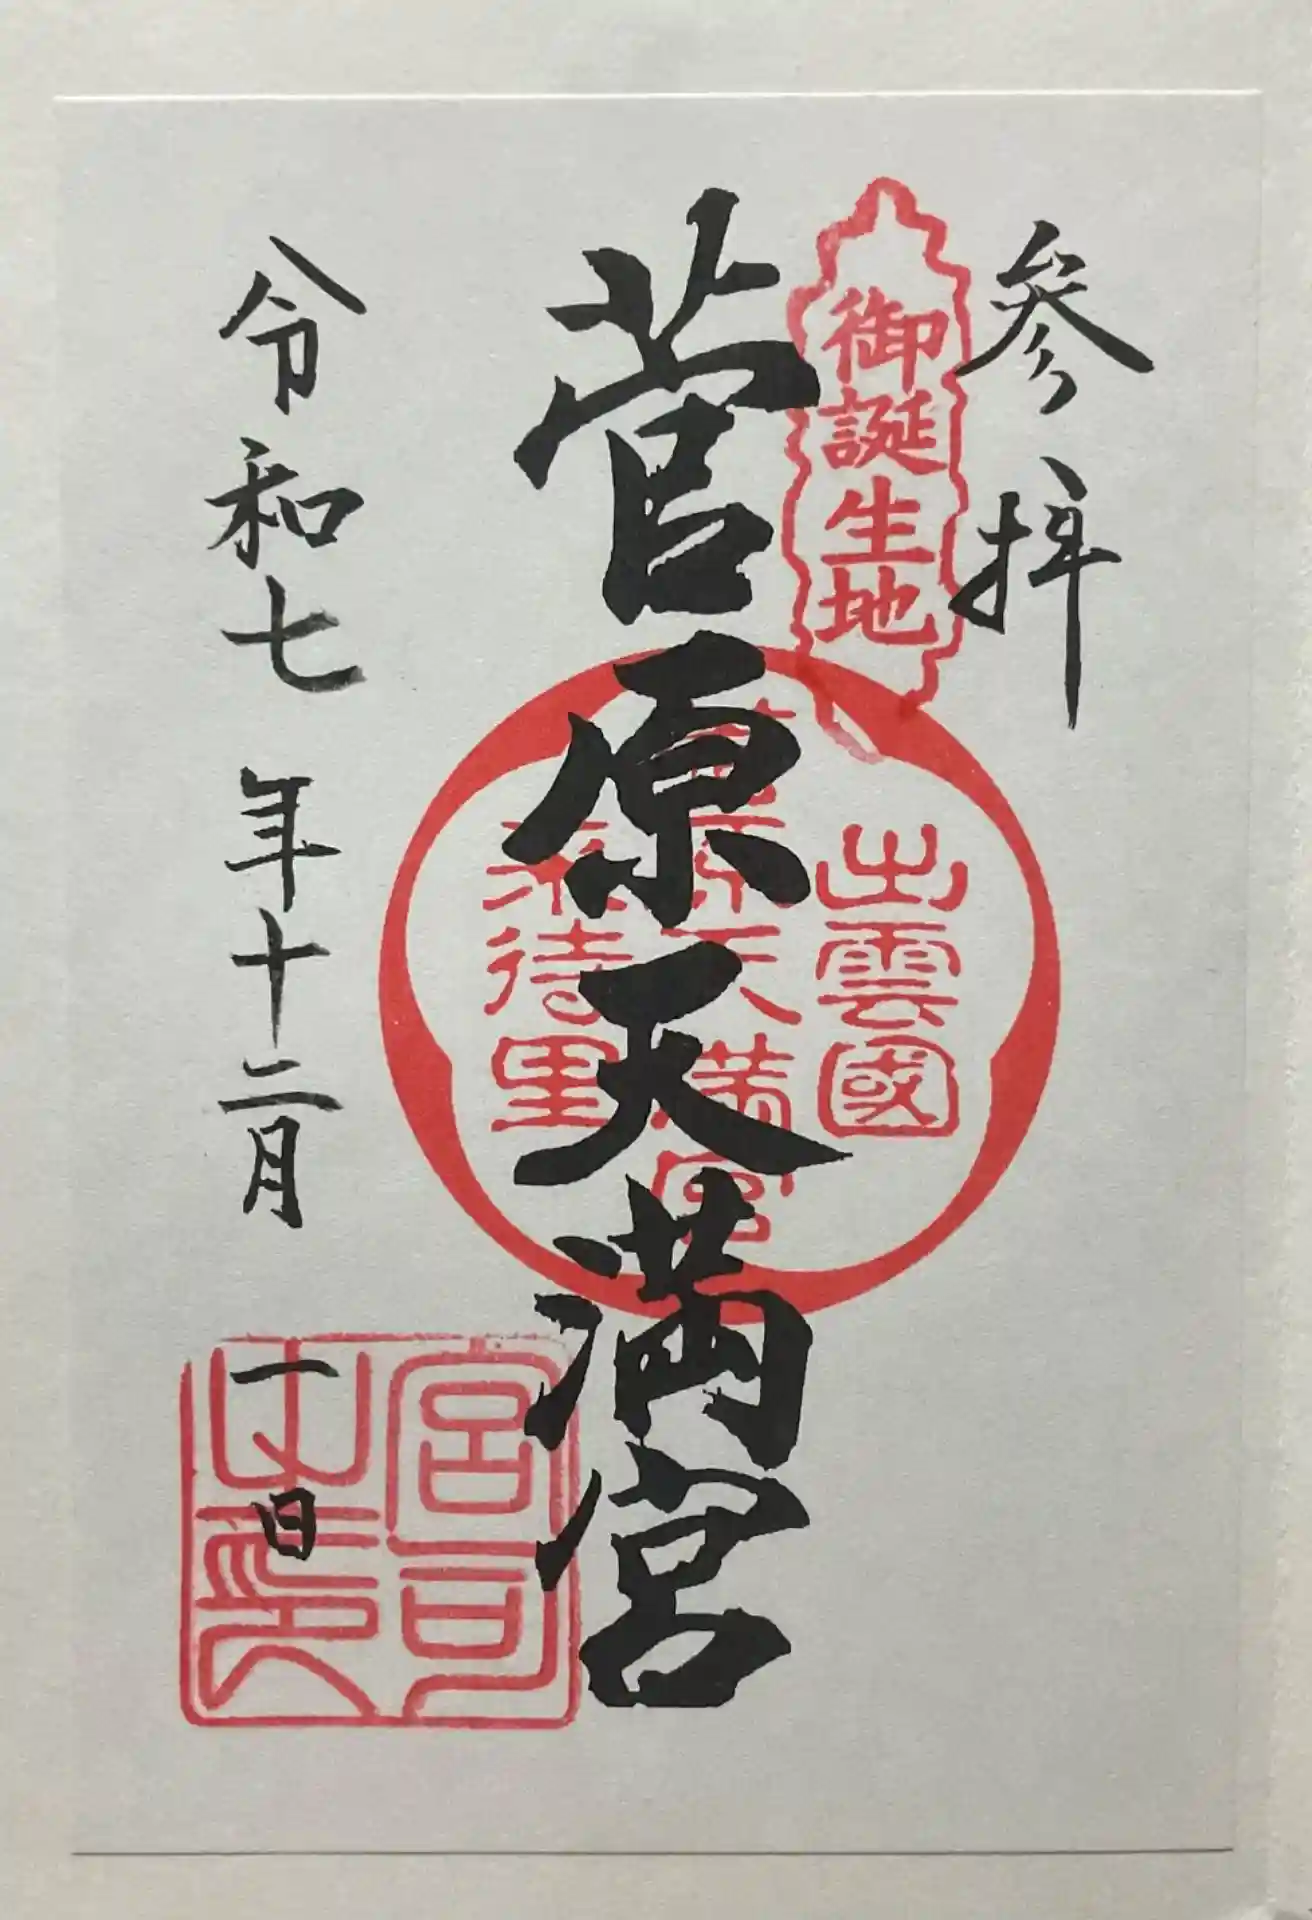 参拝
御誕生地
菅原天満宮
出雲國
菅原天満宮
来待里
令和七年十二月一日
宮司之印